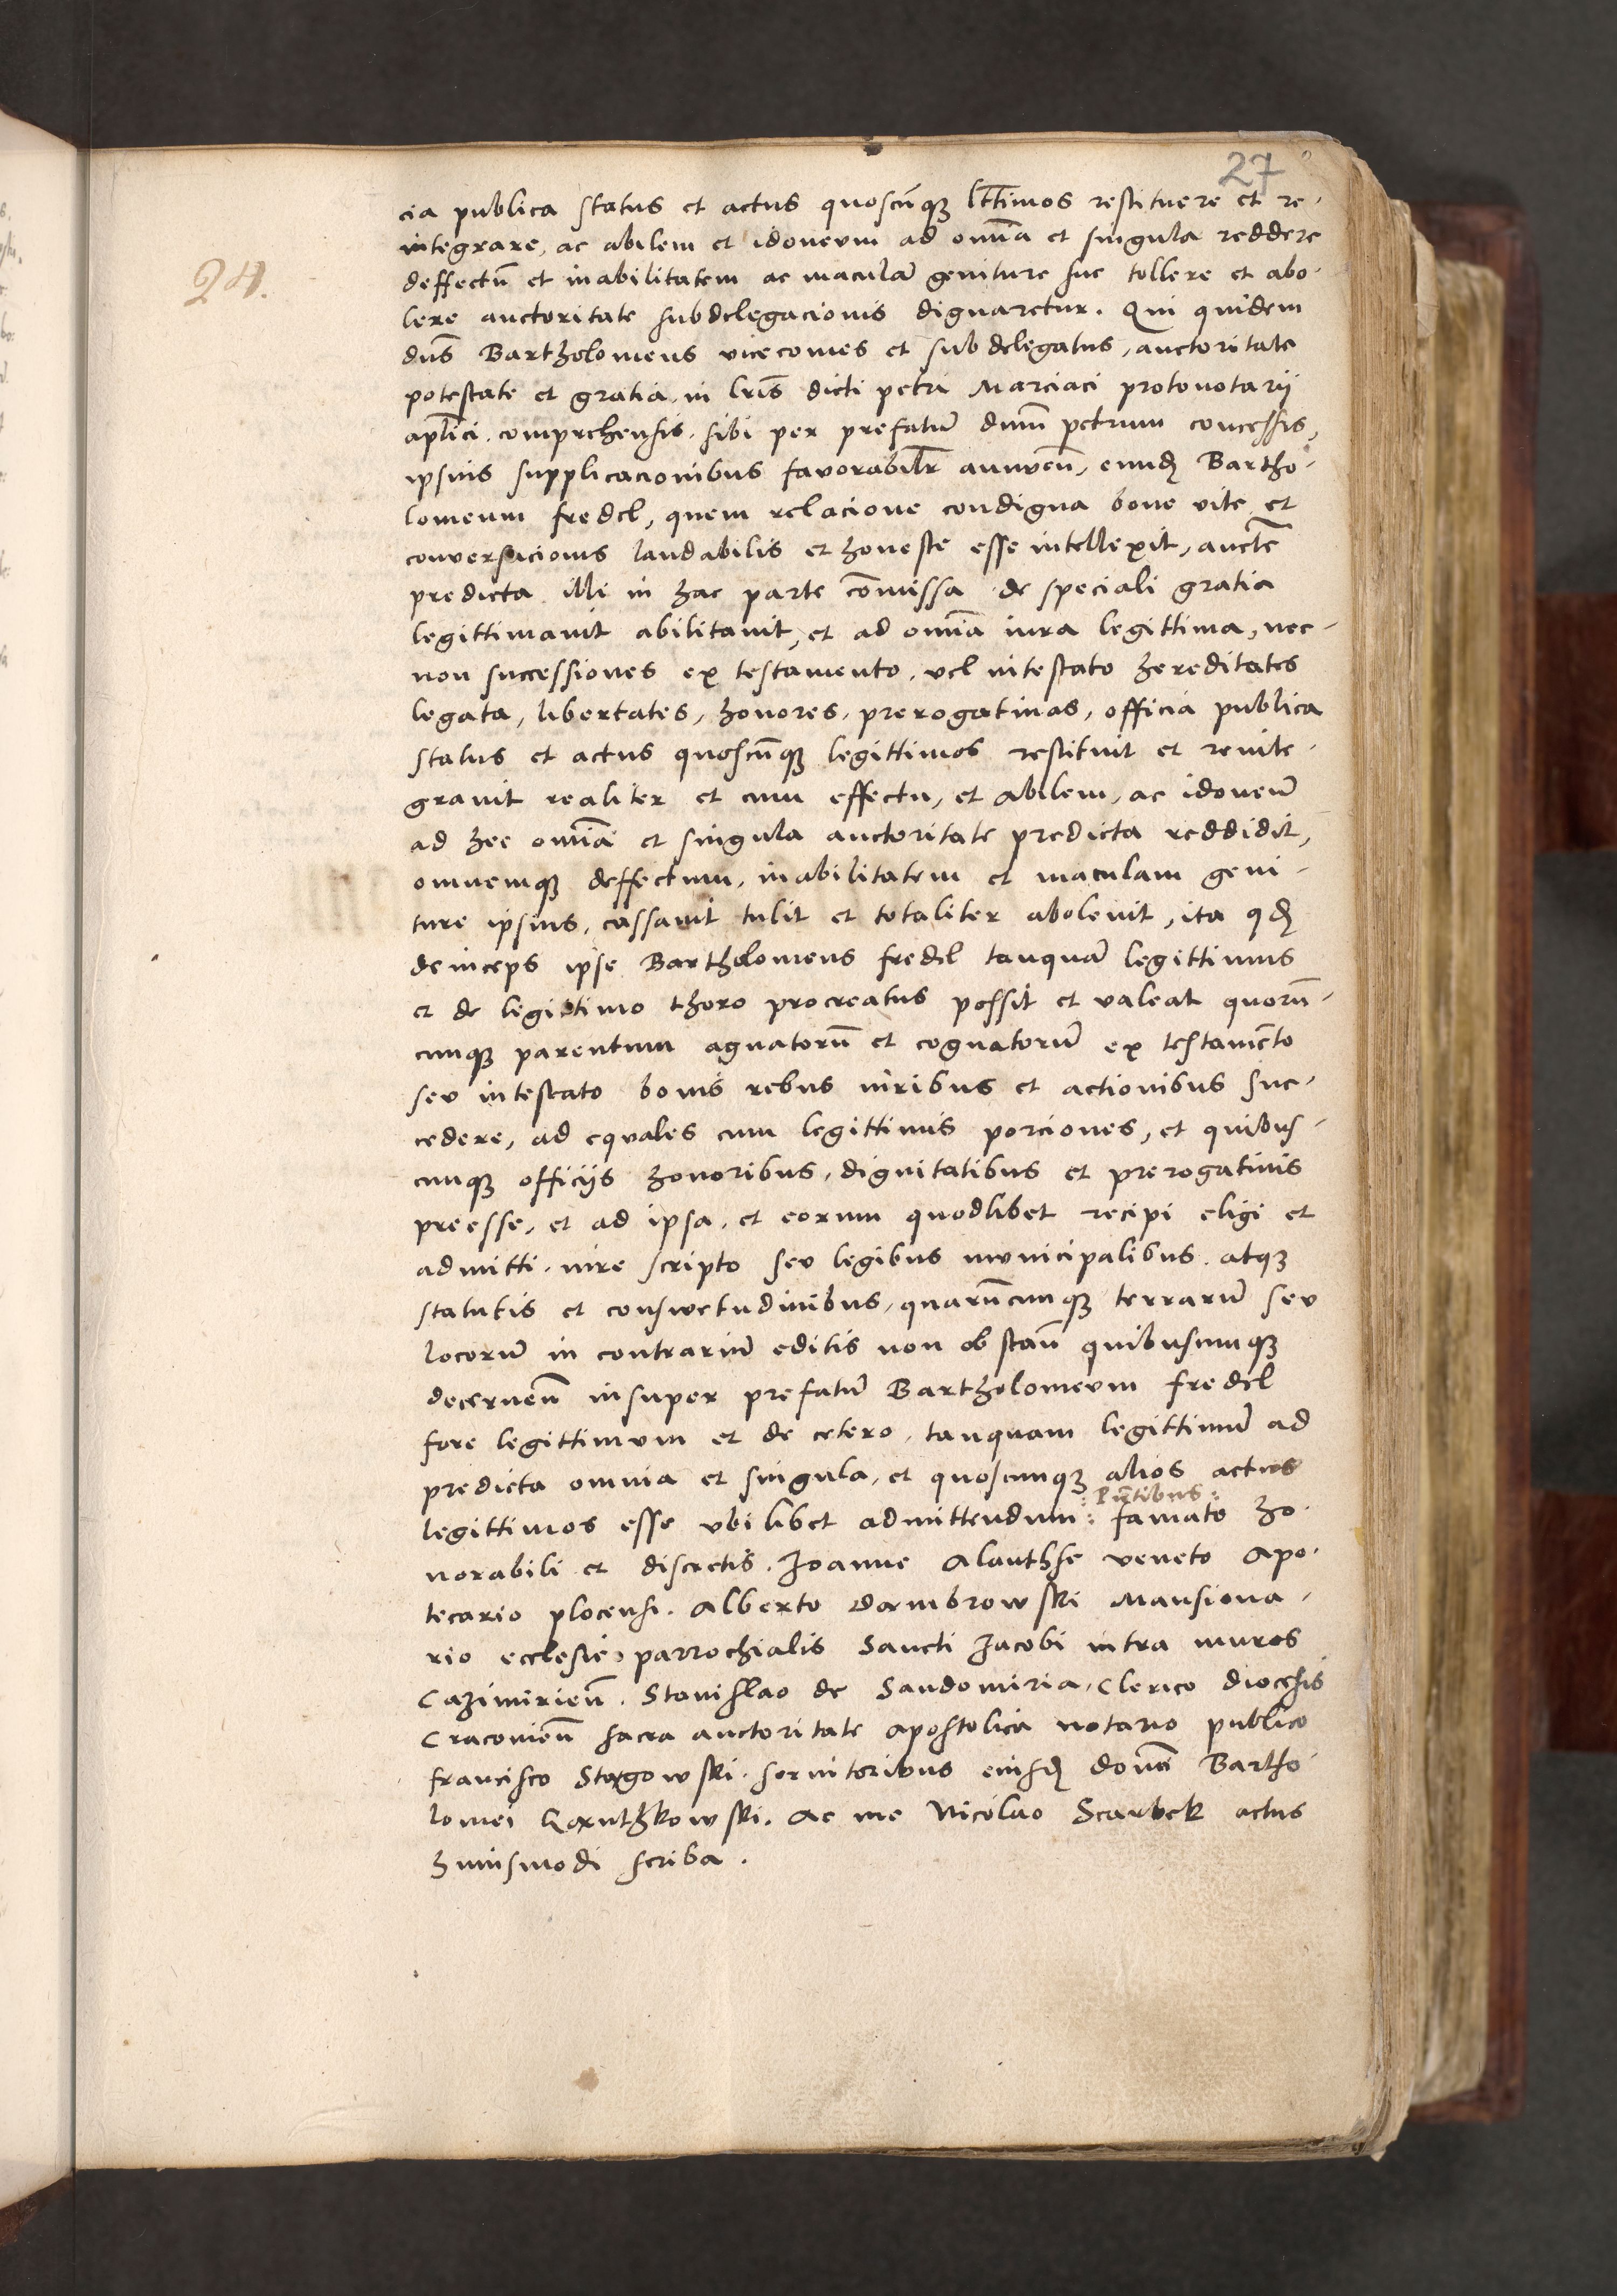 27
24.
cia publica status et actus quoscūqꝫ lttimos restituere et re-
integrare, ac abilem et idoneum ad omīa et singula reddere
deffectū et inabilitatem ac maculā geniture sue tollere et abo-
lere auctoritate subdelegacionis dignaretur. Qui quidem
dn̄s Bartholomeus vicecomes et subdelegatus, auctoritate
potestate et gratia in lr̄is dicti petri Marciaci protonotarij
apl̄ici. comprehensis. sibi per prefatū dn̄m petrum concessis,
ipsius supplicacionibus favorabilr̄ annuen̄, eundꝫ Bartho-
lomeum fredel, quem relacione condigna bone vite et
conversacionis laudabilis et honeste esse intellexit, auctē
predicta illi in hac parte cōmissa de speciali gratia
legittimavit abilitavit, et ad omīa iura legittima, nec-
non successiones ex testamento. vel intestato hereditates
legata, libertates, honores, prerogativas, officia publica
status et actus quoscūqꝫ legittimos restituit et reinte-
gravit realiter et cum effectu, et abilem, ac idoneū
ad hec omīa et singula auctoritate predicta reddidit,
omnemqꝫ deffectum, inabilitatem et maculam geni-
ture ipsius, cassavit tulit et totaliter abolevit, ita qꝫ
deinceps ipse Bartholomeus fredel tanquā legittimus
et de legittimo thoro procreatus possit et valeat quorū-
cunqꝫ parentum agnatorū et cognatorū ex testamēto
seu intestato bonis rebus iuribus et actionibus suc-
cedere, ad equales cum legittimis porciones, et quibus-
cunqꝫ officijs honoribus, dignitatibus et prerogativis
preesse, et ad ipsa, et eorum quodlibet recipi eligi et
admitti. iure scripto seu legibus municipalibus. atqꝫ
statutis et conswetudinibus, quarūcunqꝫ terrarū seu
locorū in contrariū editis non obstan̄ quibuscunqꝫ
decernen̄ insuper prefatū Bartholomeum fredel
fore legittimum et de cetero, tanquam legittimū ad
predicta omnia et singula, et quoscunqꝫ alios actus
:Pn̄tibus:
legittimos esse ubilibet admittendum: famato ho-
norabili et discretis. Joanne Alanthse veneto Apo-
tecario plocensi. Alberto Dambrowski Mansiona-
rio ecclesie parrochialis Sancti Jacobi intra muros
Cazimirien̄. Stanislao de Sandomiria, Clerico diocesis
Cracovien̄ sacra auctoritate apostolica notario publico
francisco Stogowski. servitoribus eiusdꝫ domī Bartho-
lomei Ganthkowski. Ac me Nicolao Scarbek actus
huiusmodi scriba.